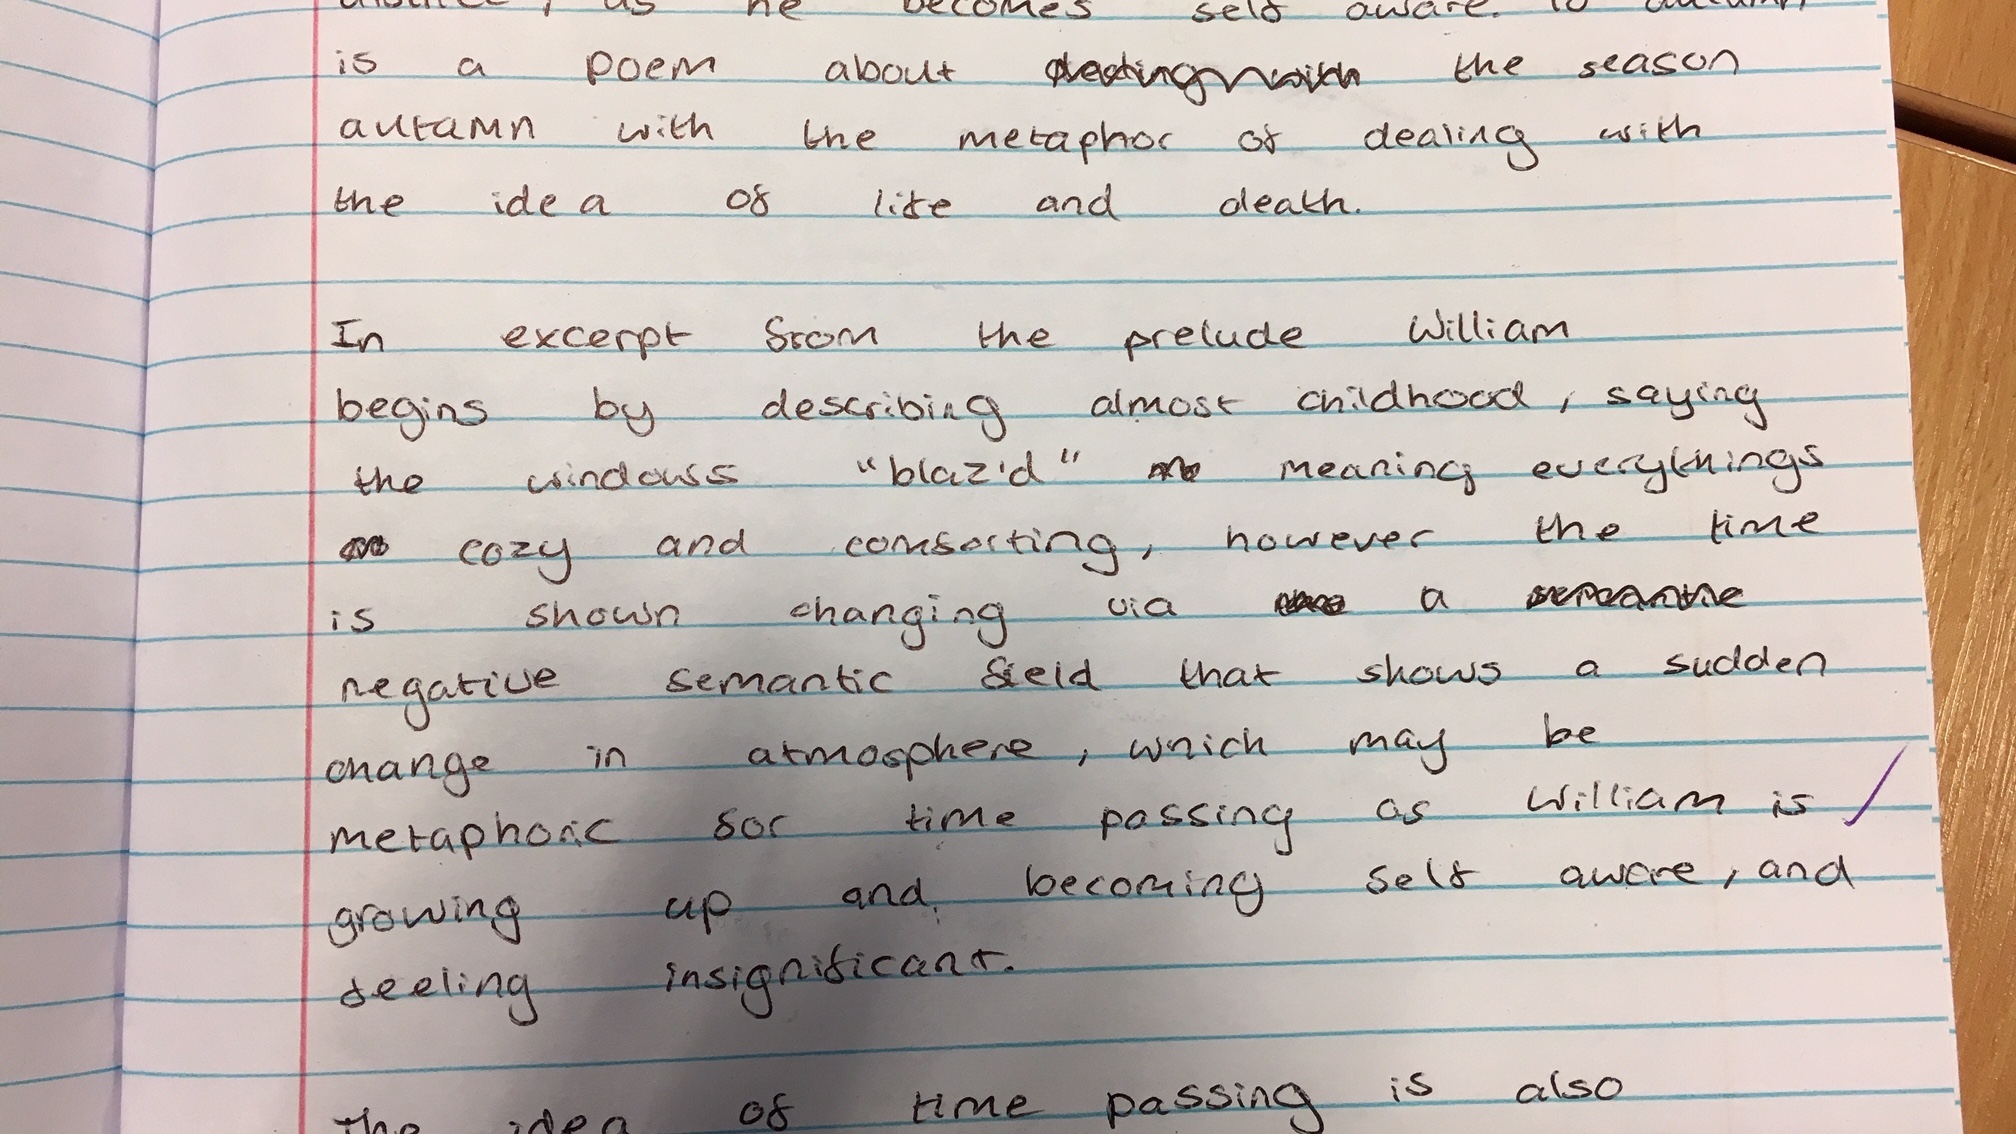 as he becomes self aware. To autumn,
is a poem about the season
autamn with the metaphor of dealing with
the idea of life and death.
In excerpt from the prelude William
begins by describing almost childhood, saying
the windows "blaz'd" meaning everythings
cozy and comforting, however the time
is shown changing via a
negative semantic field that shows a sudden
change in atmosphere, which may be
metaphoric for time passing as William is
growing up and becoming self aware, and
feeling insignificant.
The idea of time passing is also